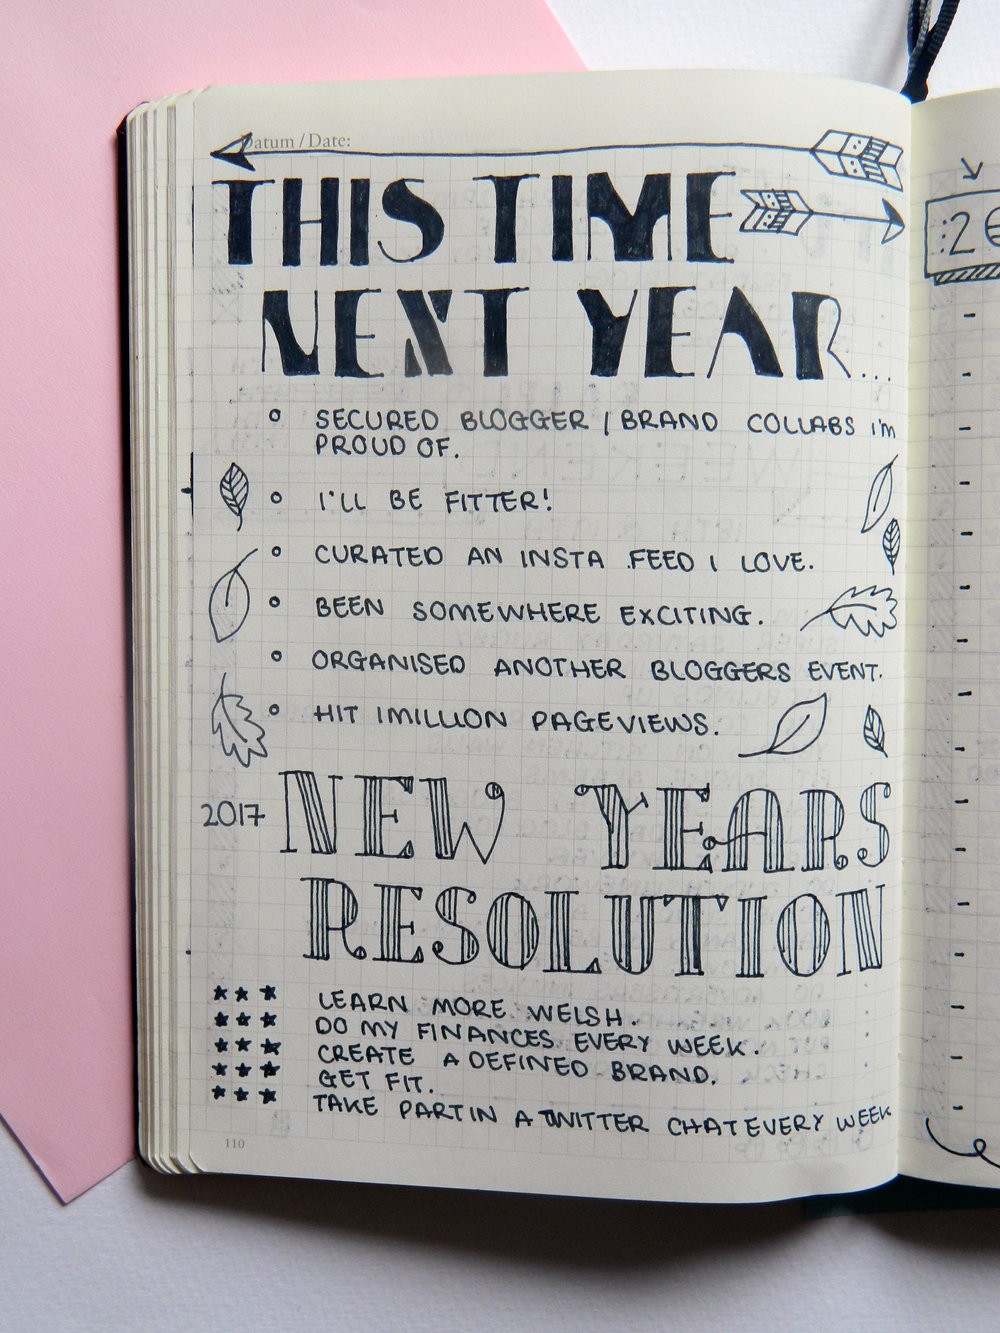 Datum / Date:
THIS TIME
NEXT YEAR...
SECURED BLOGGER / BRAND COLLABS I'm
PROUD OF.
I'LL BE FITTER!
CURATED AN INSTA FEED I LOVE.
BEEN SOMEWHERE EXCITING.
ORGANISED ANOTHER BLOGGERS EVENT.
HIT 1MILLION PAGEVIEWS.
2017 NEW YEARS
RESOLUTION
LEARN MORE WELSH.
DO MY FINANCES EVERY WEEK.
CREATE A DEFINED BRAND.
GET FIT.
TAKE PART IN A TWITTER CHAT EVERY WEEK
110
:2